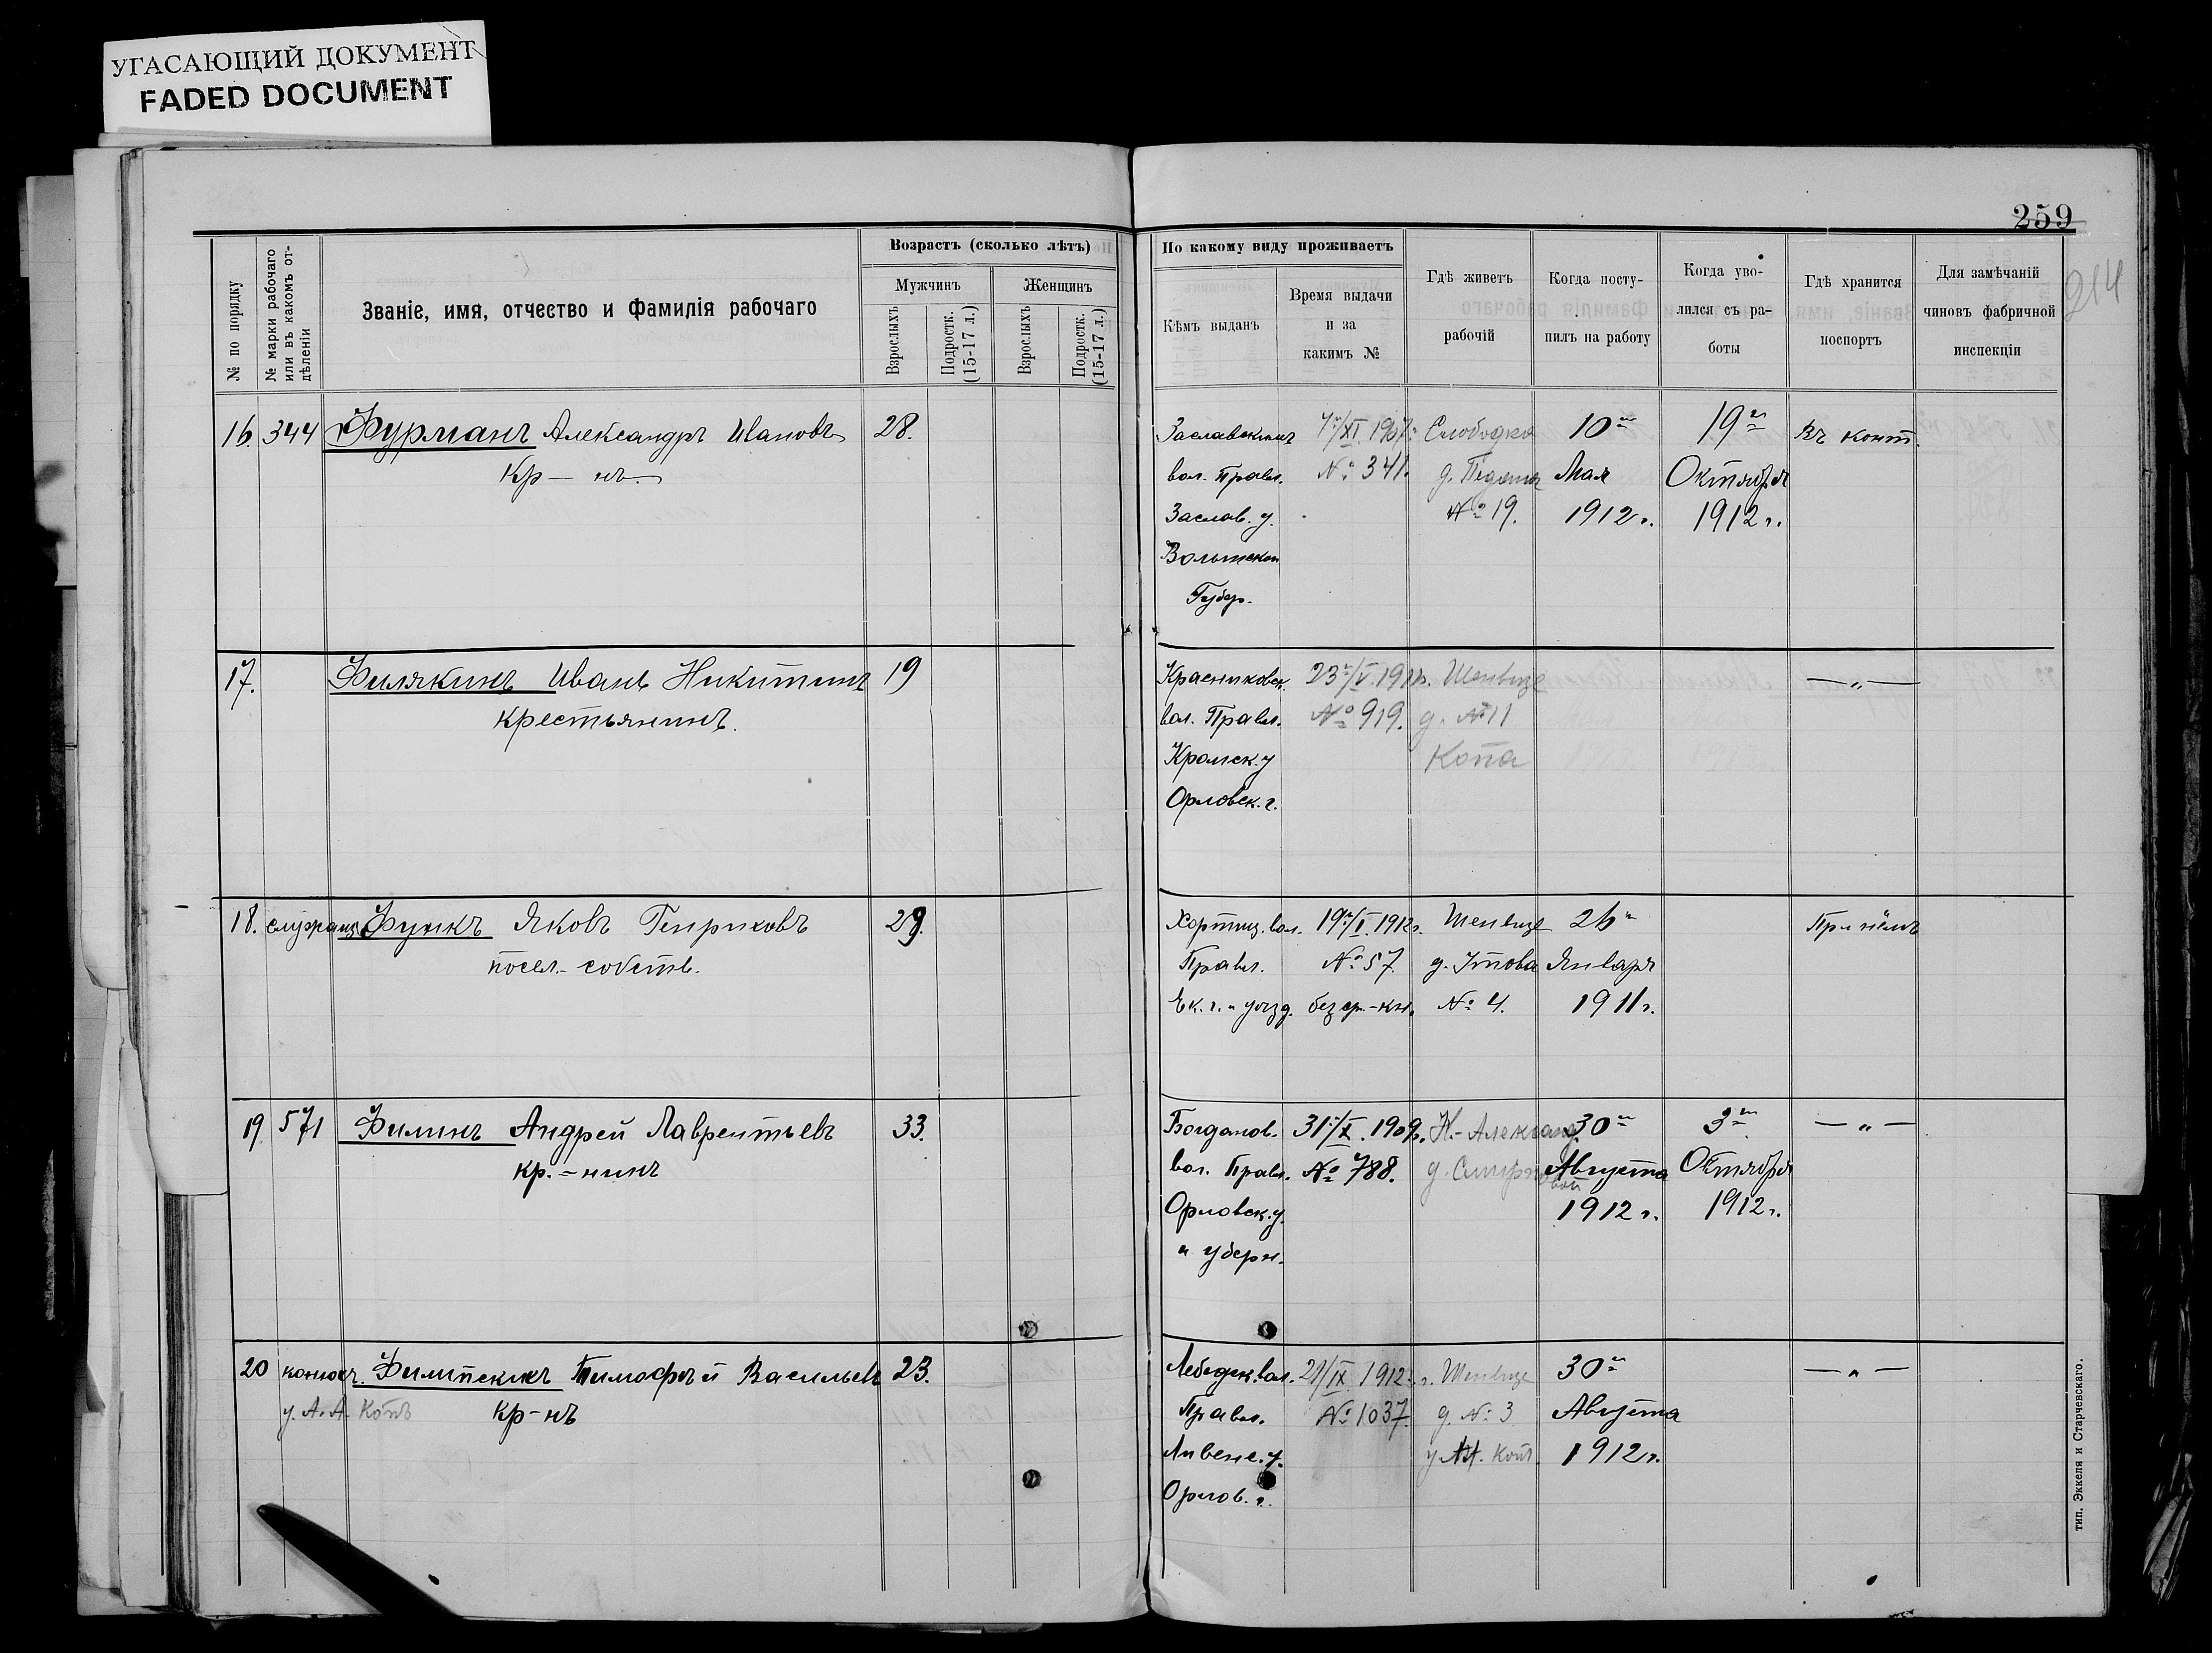 УГАСАЮЩИЙ ДОКУМЕНТ
FADED DOCUMENT
259
214
№ по порядку
№ марки рабочаго или въ какомъ от-
дѣленіи
Званіе, имя, отчество и Фамилія рабочаго
Возрастъ (сколько лѣтъ)
Мужчинъ
Женщинъ
Взрослыхъ
Подростк. (15-17 л.)
Взрослыхъ
Подростк. (15-17 л.)
По какому виду проживаетъ
Кѣмъ выданъ
Время выдачи
и за
какимъ №
Гдѣ живетъ
рабочій
Когда посту-
пилъ на работу
Когда уво-
лился съ ра-
боты
Гдѣ хранится
поспортъ
Для замѣчаній
чиновъ фабричной
инспекціи
16. 344 Фурманъ Александръ Ивановъ 28.
Кр-нъ.
Заславскимъ
вол. правл.
Заслав. у.
Волынской
Губер.
7го/XI. 1907г.
№ 341.
Слободка
д.
№ 19.
10го
Мая
1912 г.
19го
Октября
1912 г.
Въ конт.
17. Филякинъ Иванъ Никитинъ 19
крестьянинъ.
Красниковск.
вол. Правл.
Кромск. у
Орловск. г.
23го/V. 191
№ 919.
Шенвизе
д. №11
Копа
— „ —
18. служащ. Функъ Яковъ Генриховъ 29.
посел.-собств.
Хортиц. вол.
Правл.
Ек. г. и уѣзд.
19го/I. 1912г.
№ 57.
без ср.-кн.
Шенвизе
д.
№ 4.
26го
Января
1911 г.
При нёмъ
19 571 Филинъ Андрей Лаврентьевъ 33.
кр.-нинъ
Богданов.
вол. Правл.
Орловск. у.
и губерн.
31го/X. 1909г.
№ 788.
Н.-Александ.
д. Смирновой
30го
Августа
1912 г.
3го
Октября
1912 г.
— „ —
20 конюхъ. Филипскихъ Тимофѣй Васильевъ 23.
у. А. А. Копъ кр-нъ
Лебедск. вол.
Правл.
Ливенс. у.
Орлов. г.
21/IX. 1912 г.
№ 1037.
Шенвизе
д. № 3
у АА. Копъ
30го
Августа
1912 г.
— „ —
тип. Эккеля и Старчевскаго.